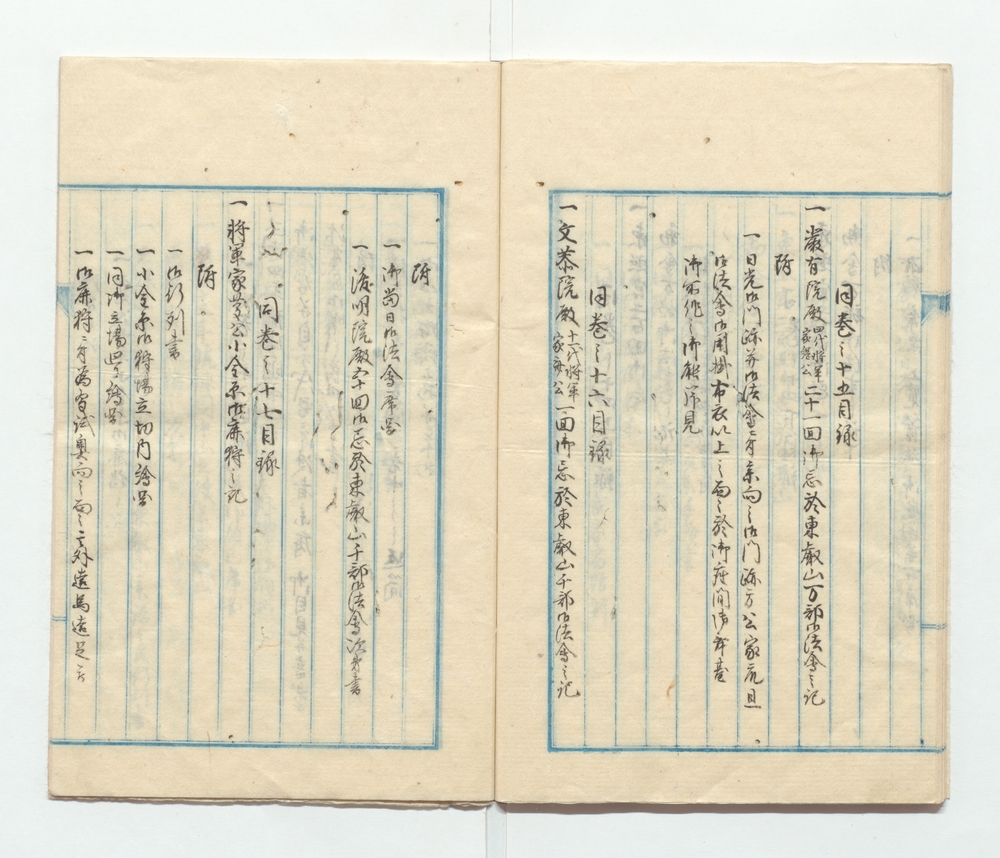 同巻之十五目録
一嚴有院殿四代将軍家綱公二十一回御忌於東叡山万部御法會之記
附
一日光御門跡并御法會ニ付参向之御門跡方公家衆且
御法會御用掛布衣以上之面々於御座間御舞臺
御能拝見
同巻之十六目録
一文恭院殿十一代将軍家斉公一回御忌於東叡山千部御法會之記
附
一御当日御法會席図
一浚明院殿五十回御忌於東叡山千部御法會次第書
同巻之十七目録
一将軍家慶公小金原御鹿狩之記
附
一御行列書
一小金原御狩場立切内繪図
一同御立場四方繪図
一御鹿狩ニ付為習試奥向之面々遠馬遠足